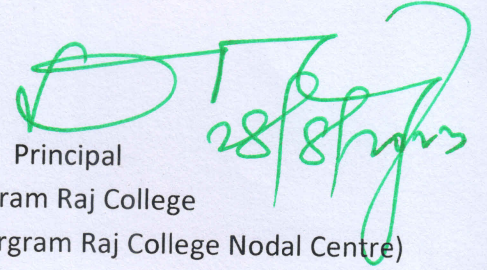 28/8/2023
Principal
ram Raj College
rgram Raj College Nodal Centre)